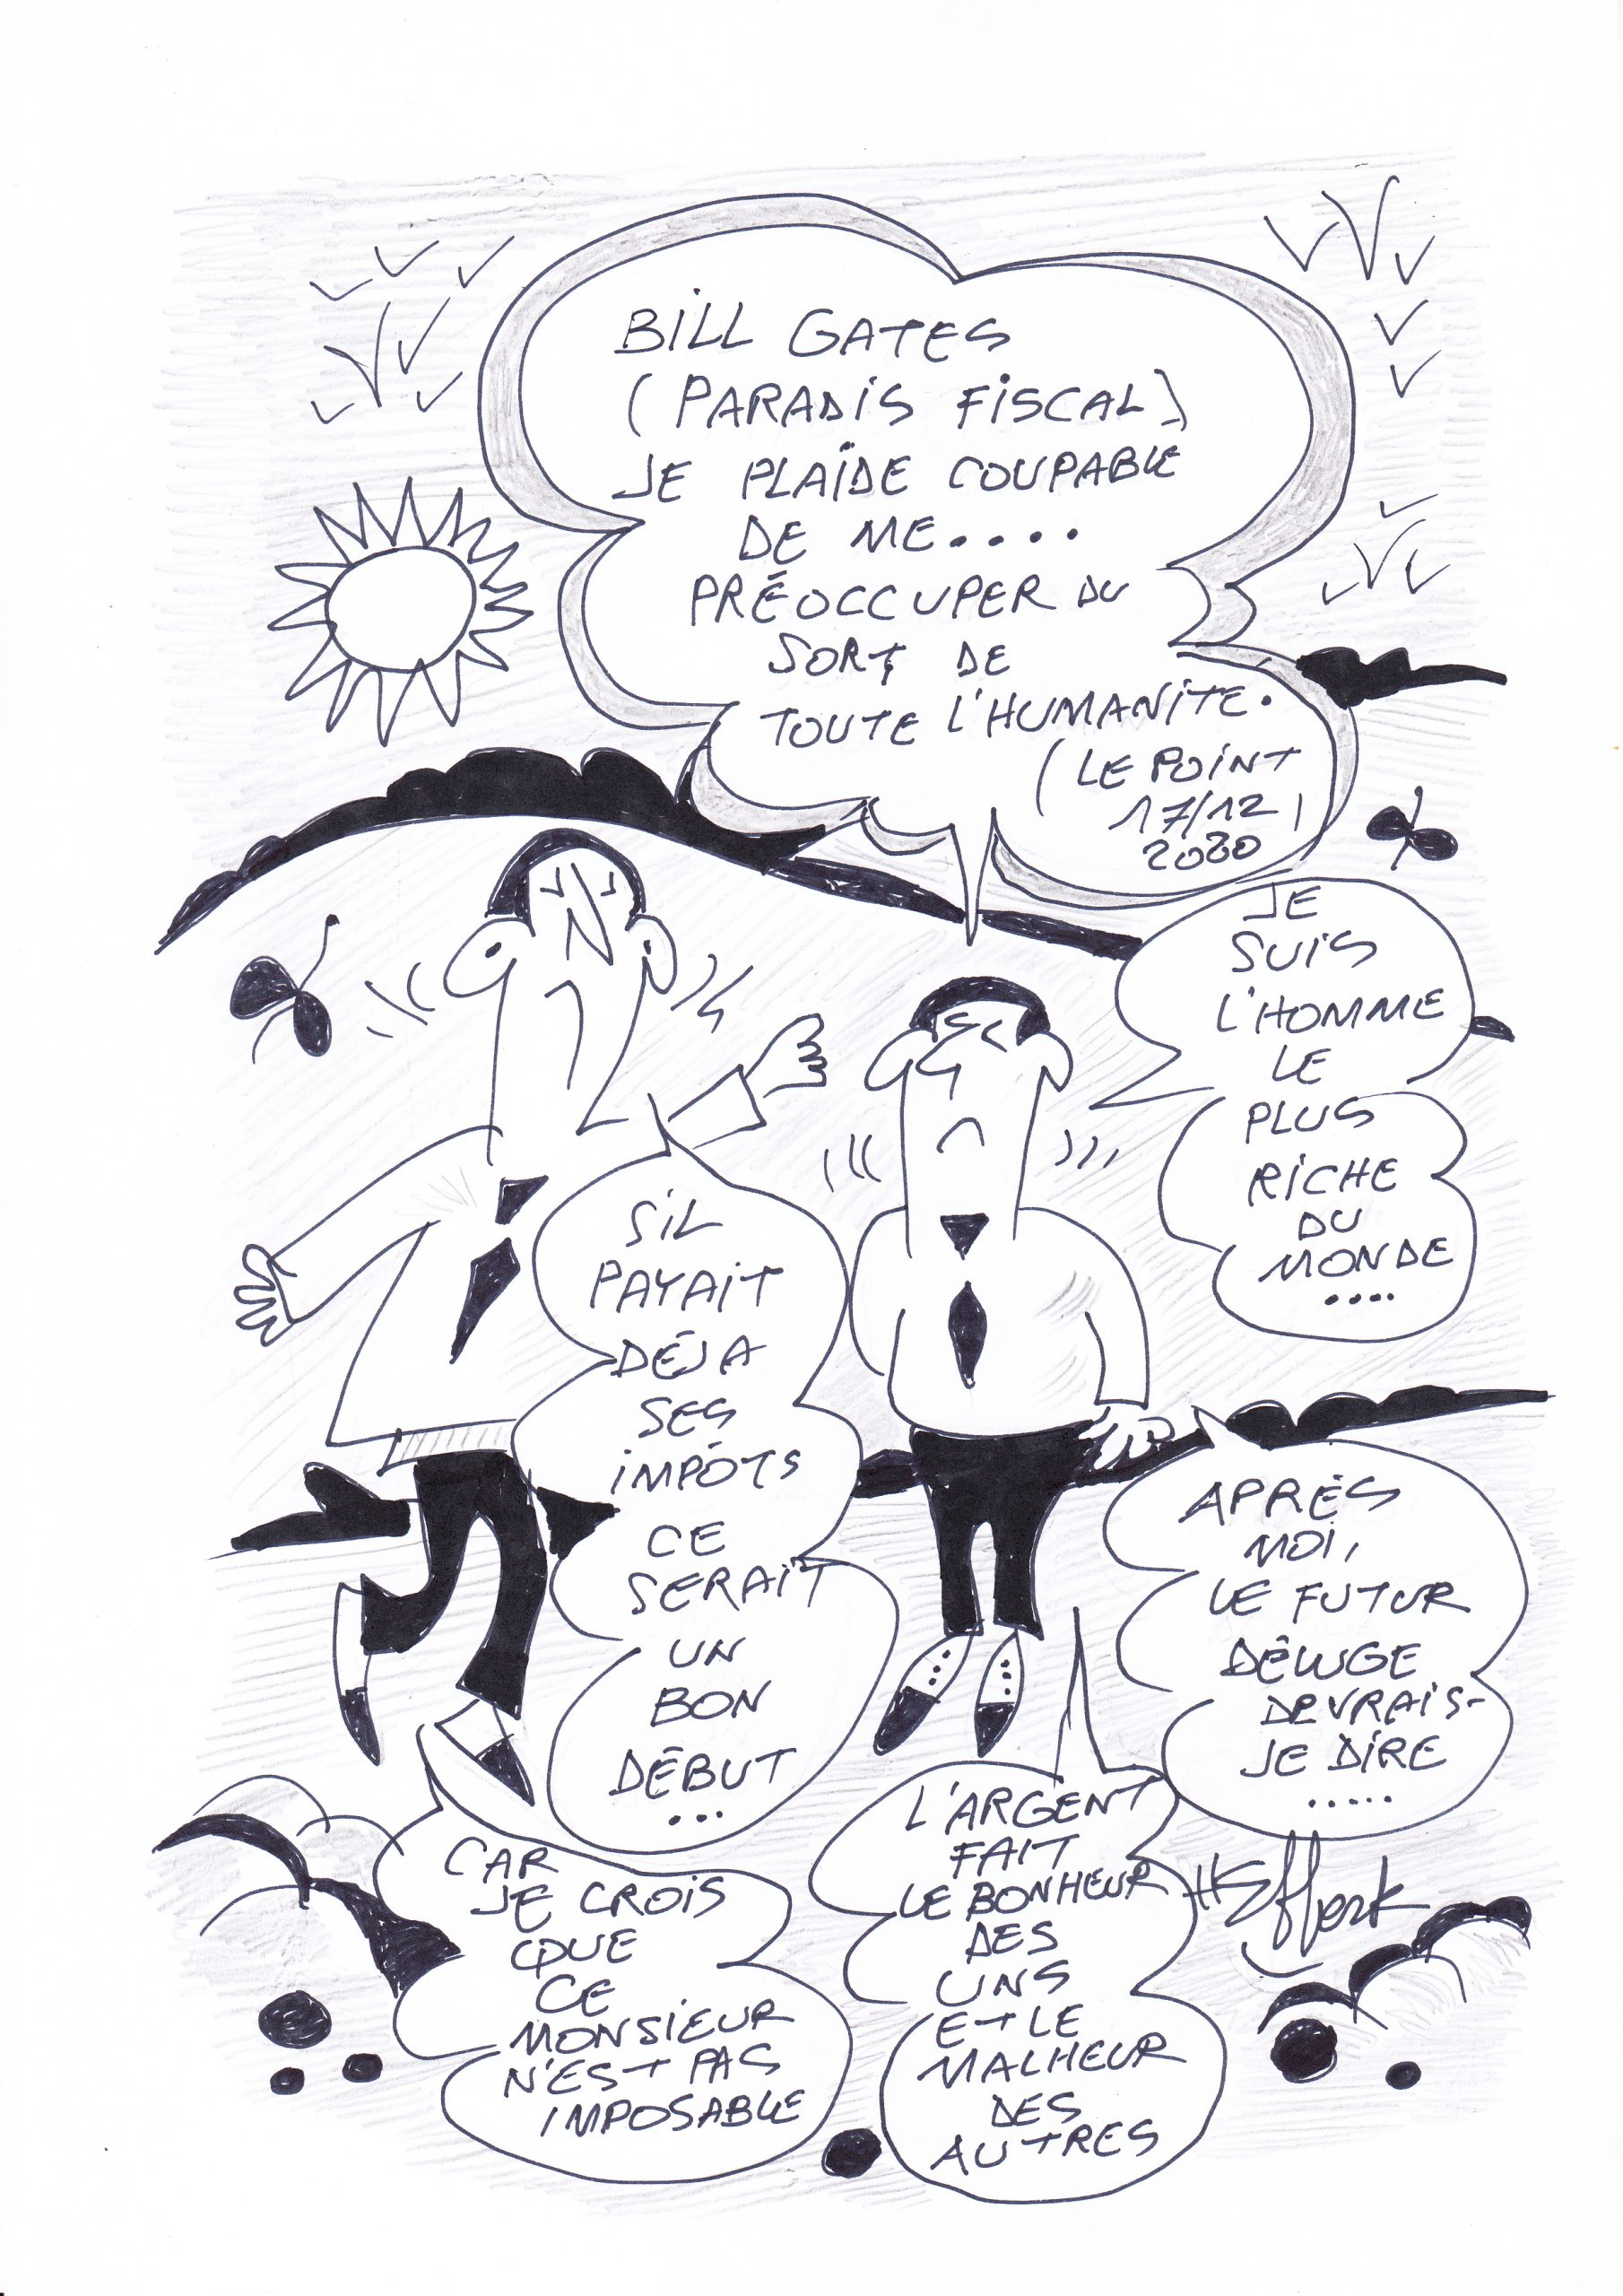 BILL GATES
(PARADIS FISCAL)
JE PLAÎDE COUPABLE
DE ME....
PRÉOCCUPER DU
SORT DE
TOUTE L'HUMANITE.
(LE POINT
17/12)
2020
JE
SUIS
L'HOMME
LE
PLUS
RICHE
DU
MONDE
....
SIL
PAYAIT
DÉJA
SES
IMPÔTS
CE
SERAIT
UN
BON
DÉBUT
...
APRÈS
MOI,
LE FUTUR
DÉLUGE
DEVRAIS-
JE DIRE
.....
CAR
JE CROIS
QUE
CE
MONSIEUR
N'EST PAS
IMPOSABLE
L'ARGENT
FAIT
LE BONHEUR
DES
UNS
ET LE
MALHEUR
DES
AUTRES